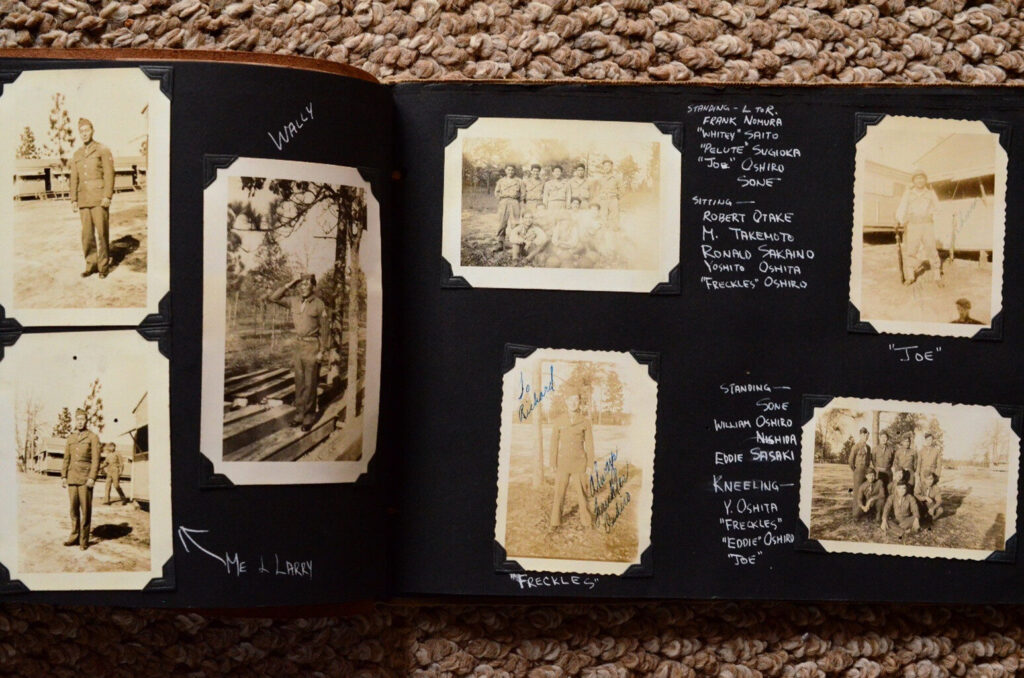 WALLY
ME & LARRY
STANDING - L TO R.
FRANK NOMURA
"WHITEY" SAITO
"PELUTE" SUGIOKA
"JOE" OSHIRO
SONE"
SITTING —
ROBERT OTAKE
M. TAKEMOTO
RONALD SAKAINO
YOSHITO OSHITA
"FRECKLES" OSHIRO
"JOE"
To
Richard
Always
"FRECKLES"
STANDING —
SONE
WILLIAM OSHIRO
NISHIDA
EDDIE SASAKI
KNEELING —
Y. OSHITA
"FRECKLES"
"EDDIE" OSHIRO
"JOE"